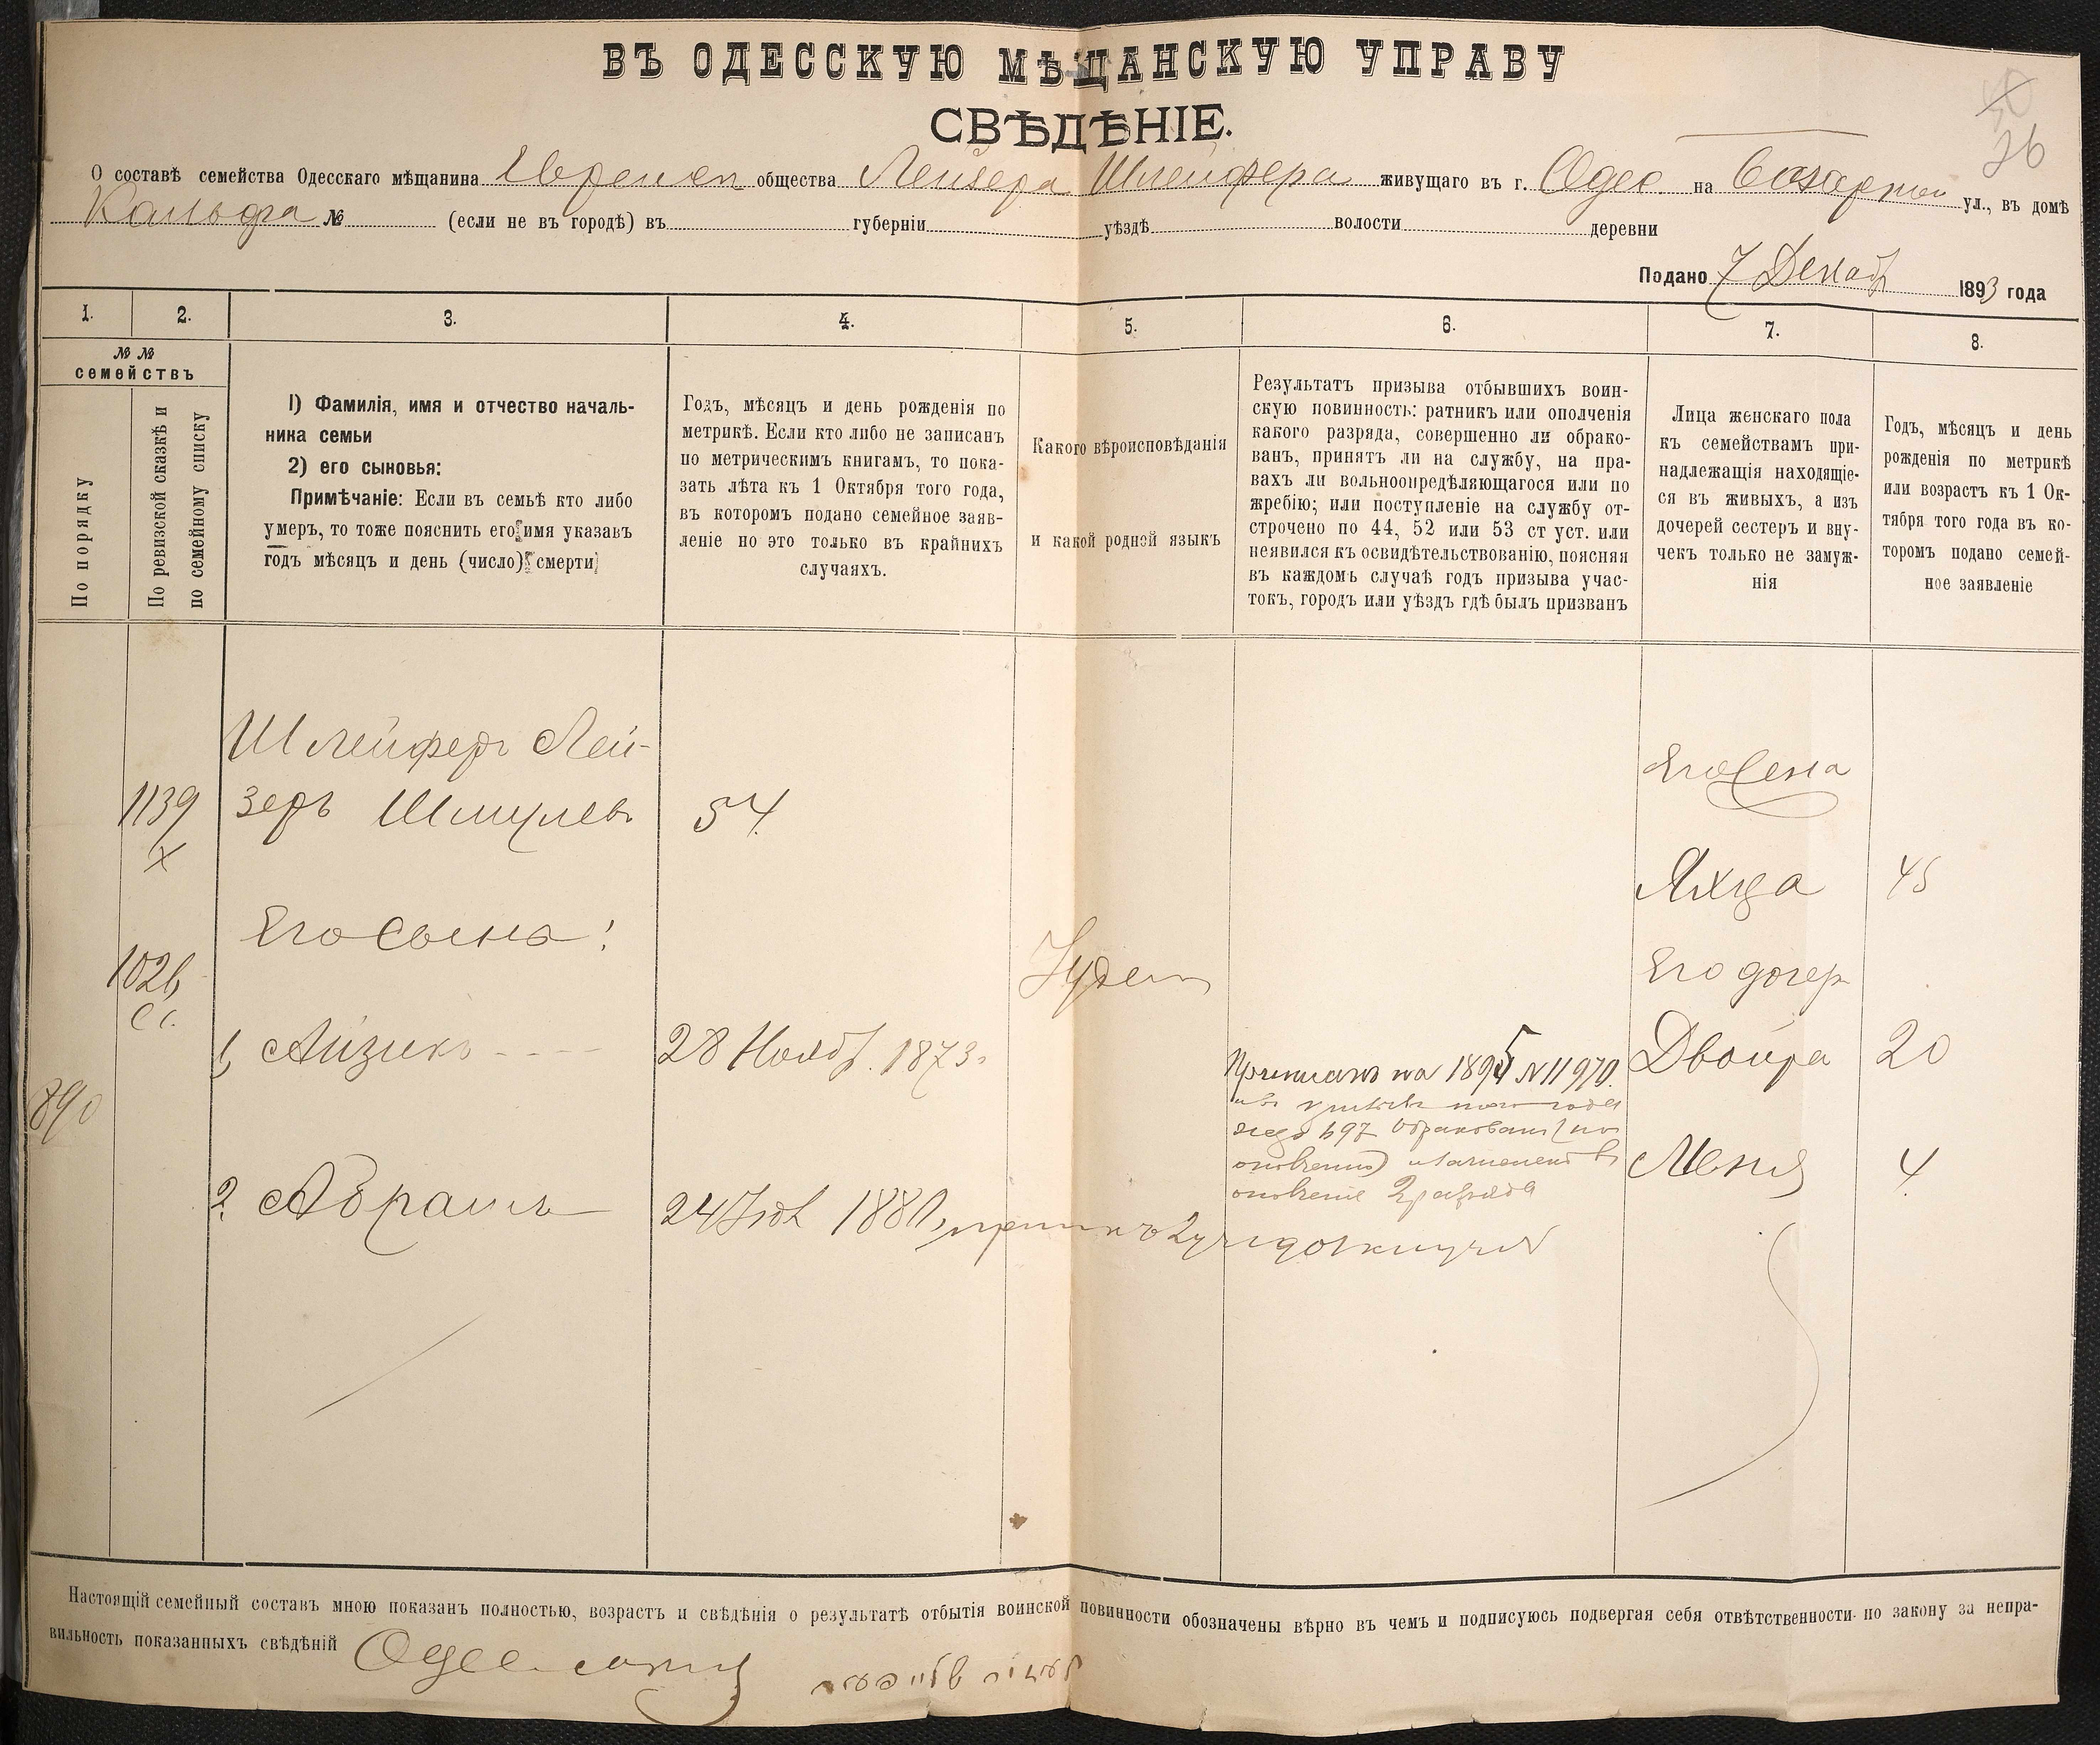 ВЪ ОДЕССКУЮ МѢЩАНСКУЮ УПРАВУ
СВѢДѢНІЕ.
26
О составѣ семейства Одесскаго мѣщанина Евреиск общества Лейзера Шлейфера живущаго въ г. Одес. на Базарной ул., въ домѣ
Кальфа № (если не въ городѣ) въ губерніи уѣздѣ волости деревни
Подано 7 Декабр 1893 года
1. 2. 3. 4. 5. 6. 7. 8.
№ №
семействъ
По порядку
По ревизской сказкѣ и
по семейному списку
1) Фамилія, имя и отчество началь-
ника семьи
2) его сыновья:
Примѣчаніе: Если въ семьѣ кто либо
умеръ, то тоже пояснить его имя указавъ
годъ мѣсяцъ и день (число) смерти
Годъ, мѣсяцъ и день рожденія по
метрикѣ. Если кто либо не записанъ
по метрическимъ книгамъ, то пока-
зать лѣта къ 1 Октября того года,
въ которомъ подано семейное заяв-
леніе но это только въ крайнихъ
случаяхъ.
Какого вѣроисповѣданія
и какой родной языкъ
Результатъ призыва отбывшихъ воин-
скую повинность: ратникъ или ополченія
какого разряда, совершенно ли обрако-
ванъ, принятъ ли на службу, на пра-
вахъ ли вольноопредѣляющагося или по
жребію; или поступленіе на службу от-
строчено по 44, 52 или 53 ст уст. или
неявился къ освидѣтельствованію, поясняя
въ каждомъ случаѣ годъ призыва учас-
токъ, городъ или уѣздъ гдѣ былъ призванъ
Лица женскаго пола
къ семействамъ при-
надлежащія находящіе-
ся въ живыхъ, а изъ
дочерей сестеръ и вну-
чекъ только не замуж-
нія
Годъ, мѣсяцъ и день
рожденія по метрикѣ
или возрастъ къ 1 Ок-
тября того года въ ко-
торомъ подано семей-
ное заявленіе
Шлейферъ Лей-
1139 зеръ Шмулев. 54.
Его Жена
Х
Яхца 45
Его Сыновь:
1026
Іудей
Его дочер
1, Айзикъ 28 Ноябр. 1873. Приписанъ на 1895 №11970. Двойра 20
890
2. Абрамъ 24 1880,
ополченіе 2 разряда
Меня 4.
Настоящій семейный составъ мною показанъ полностью, возрастъ и свѣдѣнія о результатѣ отбытія воинской повинности обозначены вѣрно въ чемъ и подписуюсь подвергая себя отвѣтственности по закону за непра-
вильность показанныхъ свѣдѣній